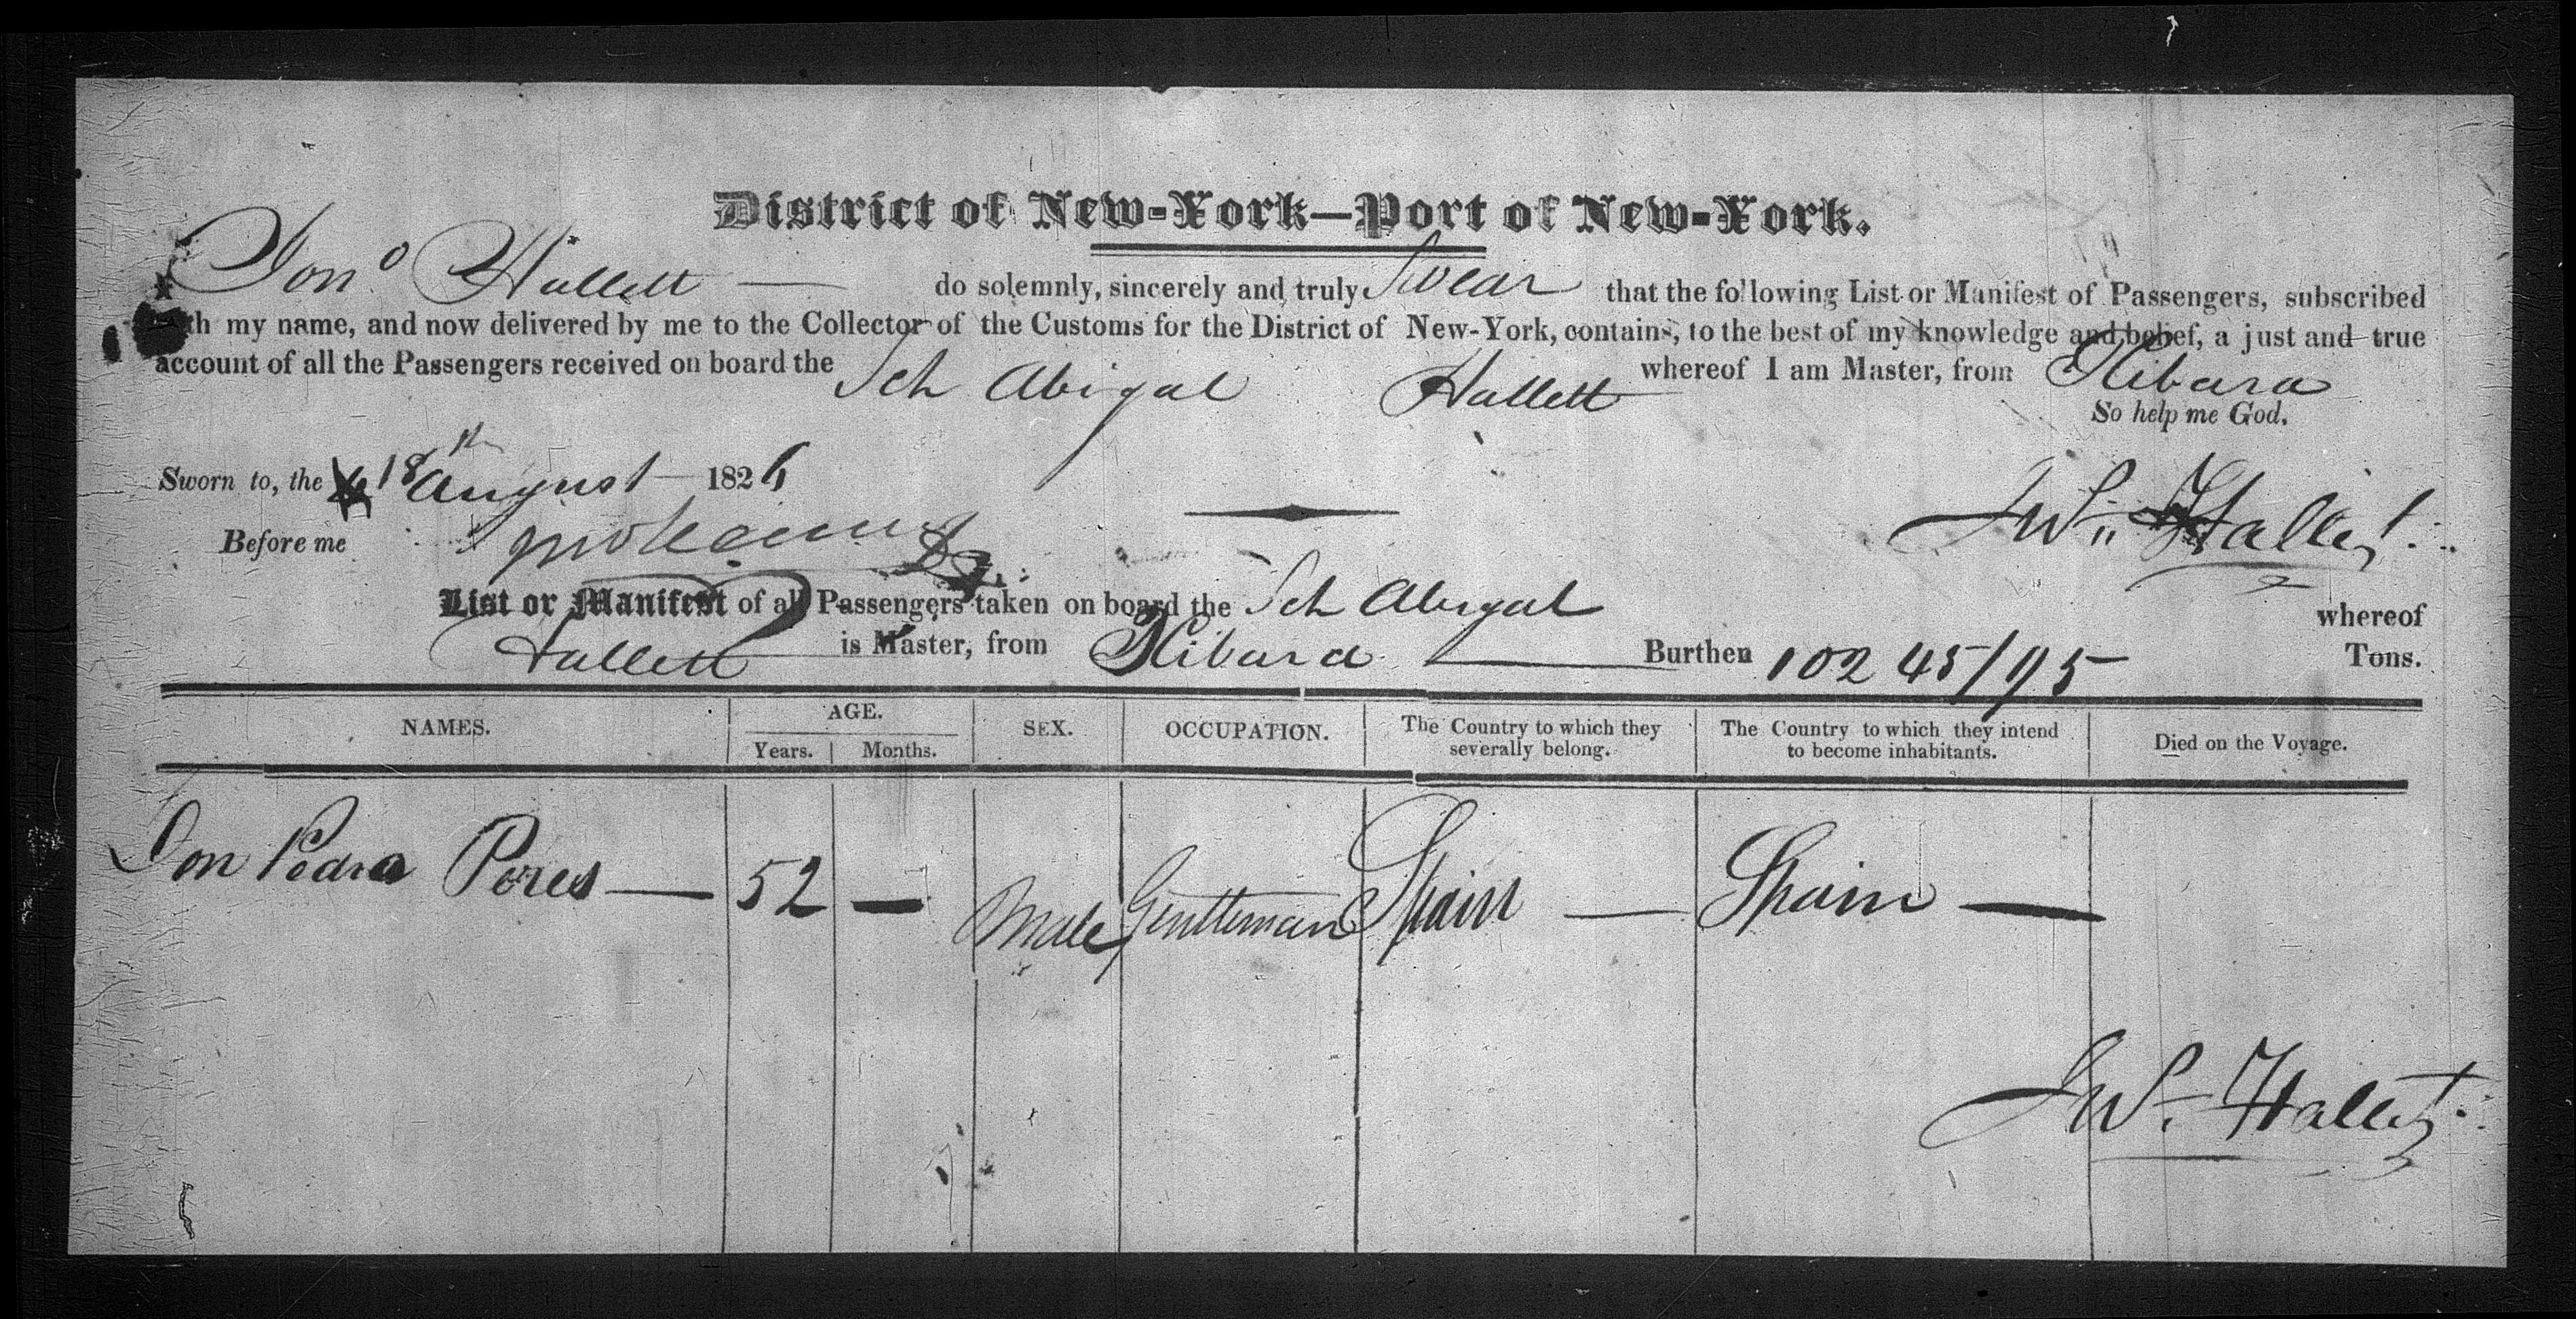 District of New-York—Port of New-York.
Jonº Hallett — do solemnly, sincerely and truly Swear that the following List or Manifest of Passengers, subscribed
with my name, and now delivered by me to the Collector of the Customs for the District of New-York, contains, to the best of my knowledge and belief, a just and true
account of all the Passengers received on board the Sch Abigal Hallett whereof I am Master, from Kibara
So help me God.
Sworn to, the 18th August 1826
Before me
Hallet
List or Manifest of all Passengers taken on board the Sch Abigal whereof
Hallett is Master, from Kibara — Burthen 102 45/95 Tons.
NAMES. AGE. Years. Months. SEX. OCCUPATION. The Country to which they severally belong. The Country to which they intend to become inhabitants. Died on the Voyage.
Don Pedra Peres — 52 — Male Gentleman Spain — Spain —
Hallet